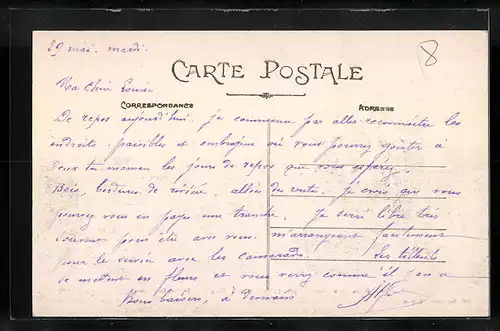 29 mai. mardi.
8
CARTE POSTALE
Ma chère Louise
CORRESPONDANCE
ADRESSE
De repos aujourd'hui. Je commence par aller reconnaître les
endroits paisibles et ombrageux où vous pourrez goûter à
deux ta maman les jours de repos que vous espérez.
Bois, bordures de rivière, allées de route. Je crois que vous
pourrez vous en payer une tranche. Je serai libre très
souvent pour être avec vous. m'arrangeant facilement
pour le service avec les camarades. Les tilleuls
se mettent en fleurs et vous verrez comme il y en a
Bons baisers, à demain